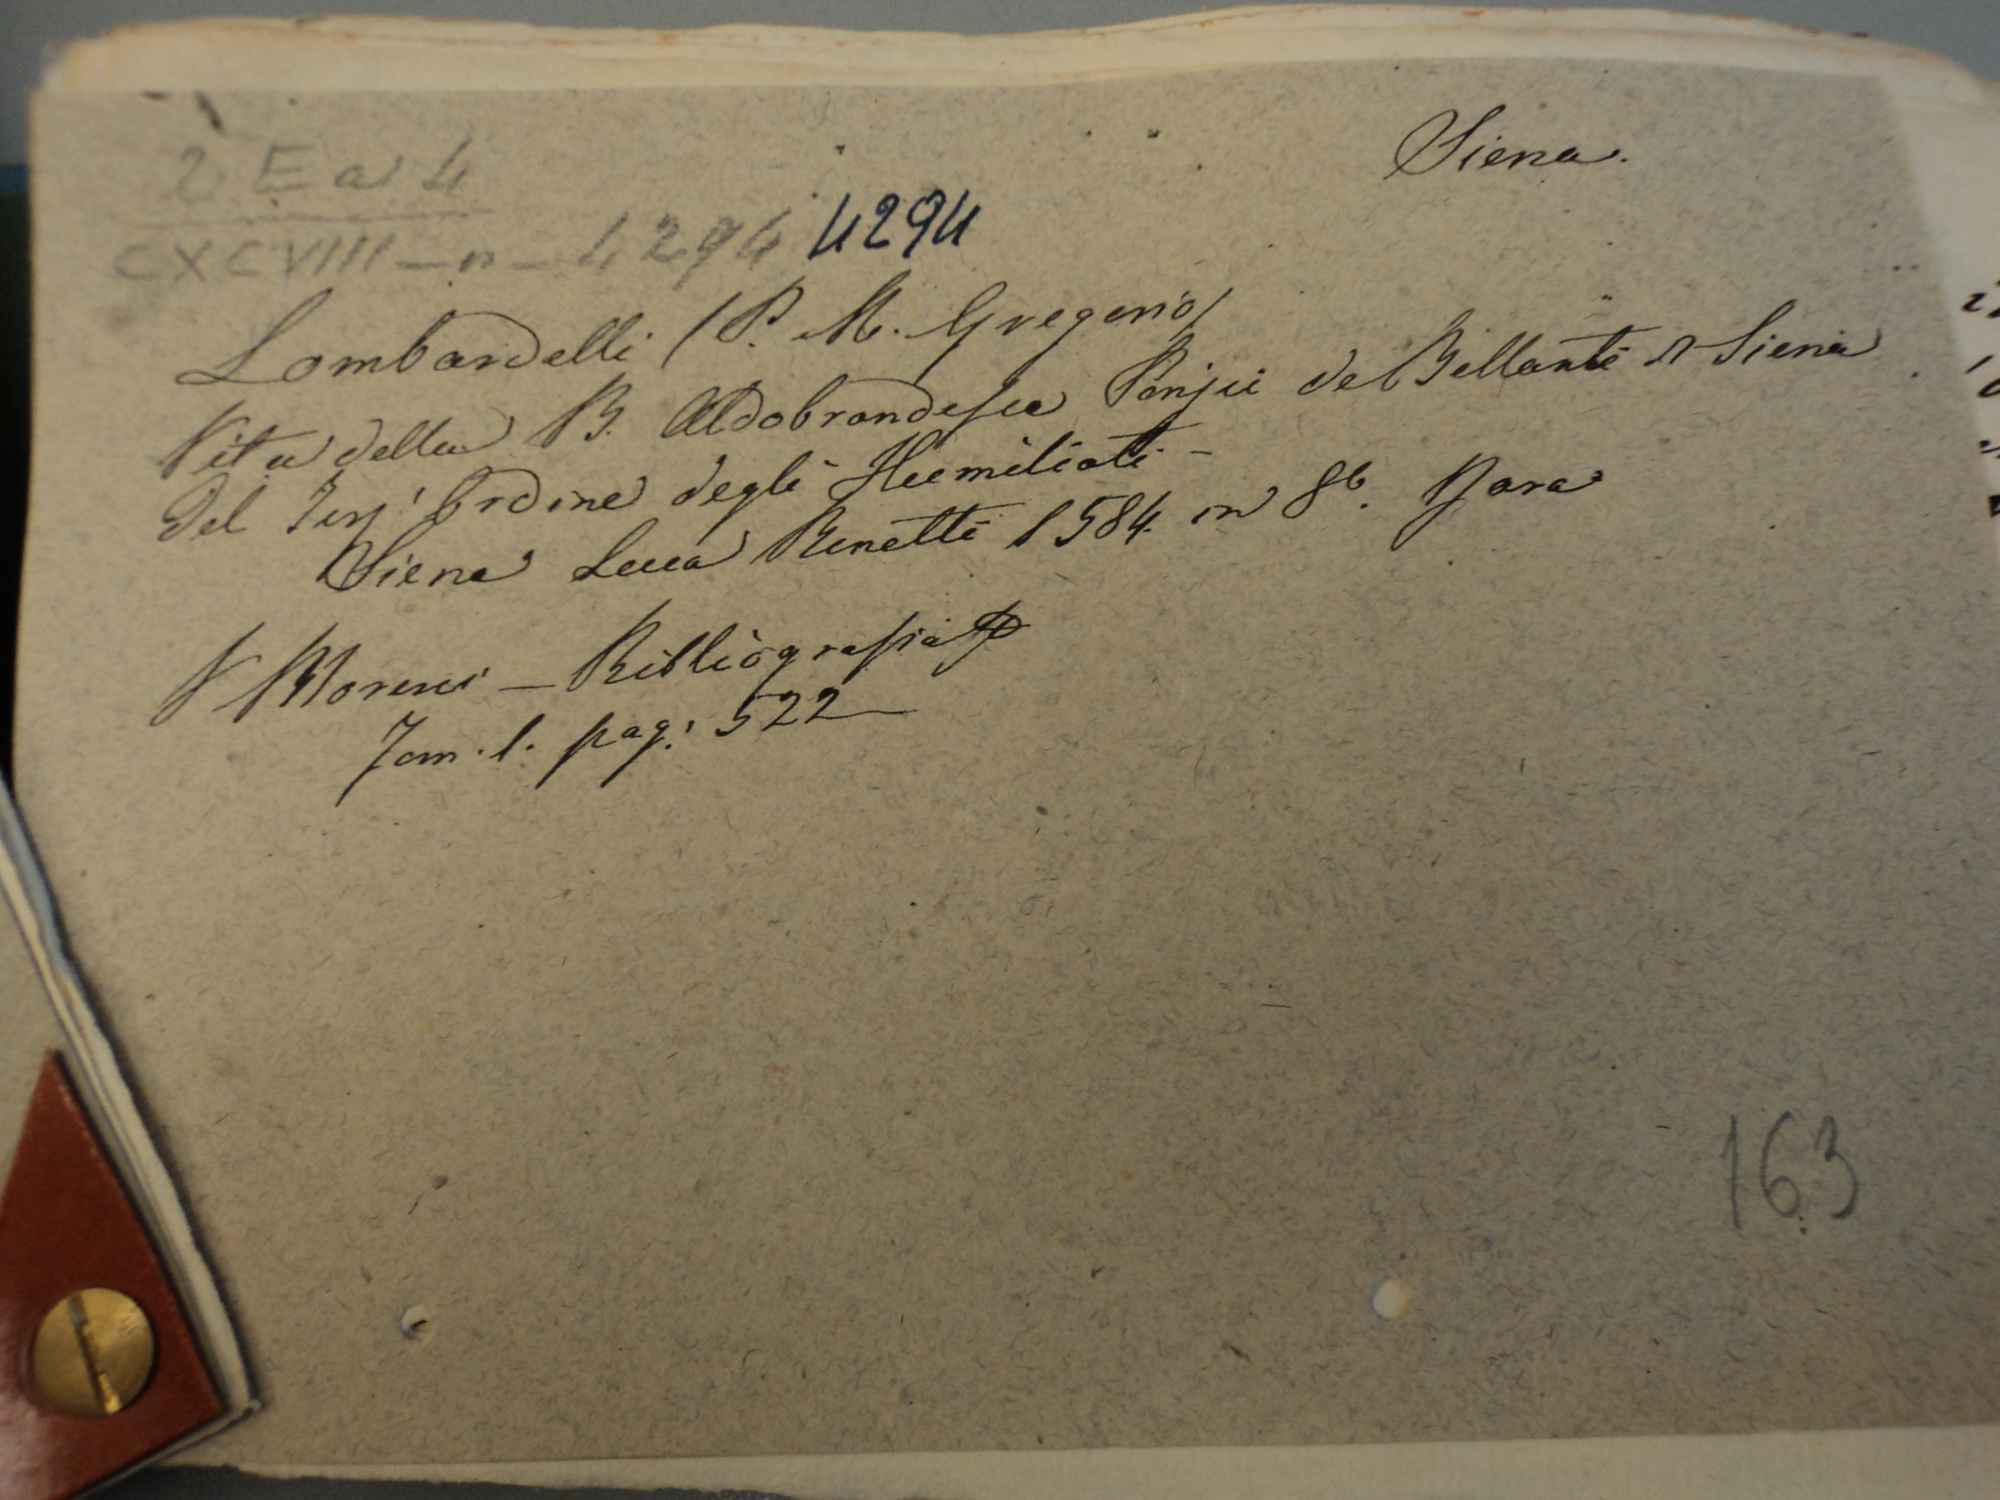 Siena.
2 E a 4
CXCVIII - n - 4294 4294
Lombardelli (P. M. Gregorio)
Vita della B. Aldobrandesca Ponzii de Bellanti di Siena
del Terz' Ordine degli Humiliati -
Siena Luca Bonetti 1584. in 8º. Rara
V Moreni - Bibliografia
Tom. 1. pag: 522
163